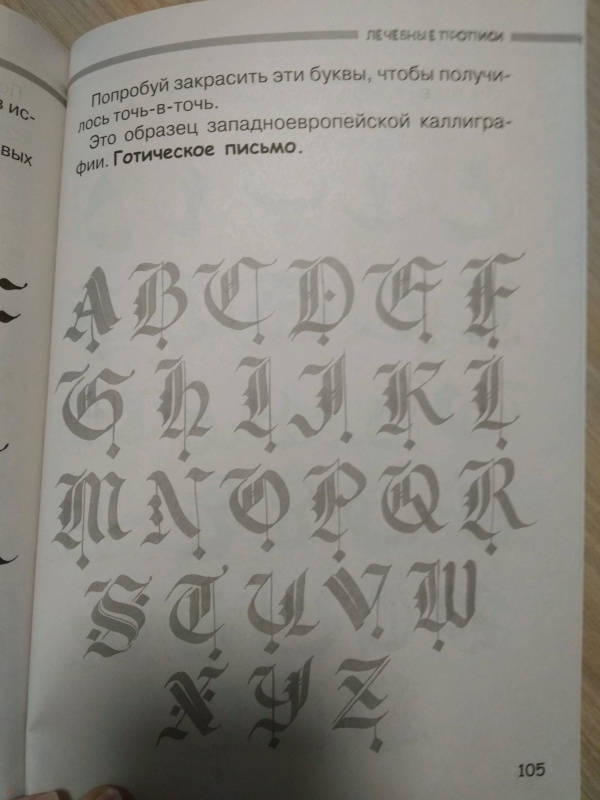 ЛЕЧЕБНЫЕ ПРОПИСИ
Попробуй закрасить эти буквы, чтобы получи-
лось точь-в-точь.
Это образец западноевропейской каллигра-
фии. Готическое письмо.
A B C D E F
G H I J K L
M N O P Q R
S T U V W
X Y Z
105
в ис-
вых